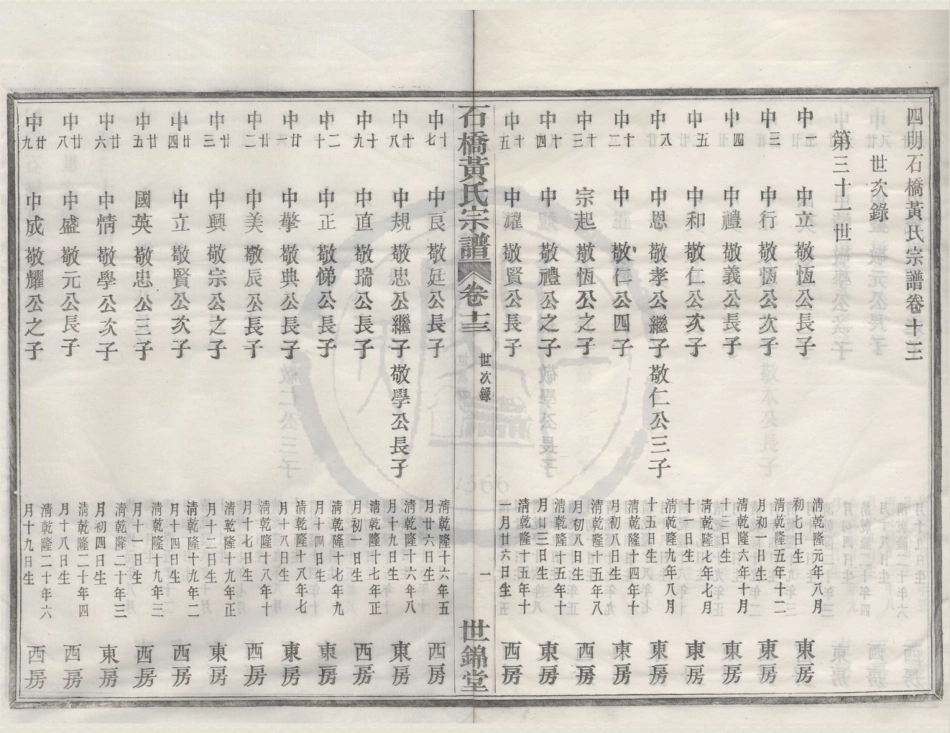 四明石橋黃氏宗譜卷十三
世次錄
第三十二世
中一 中立 敬恆公長子 清乾隆元年八月初七日生 東房
中三 中行 敬恆公次子 清乾隆五年十二月初一日生 東房
中四 中禮 敬義公長子 清乾隆六年十月十三日生 東房
中五 中和 敬仁公次子 清乾隆七年七月十一日生 東房
中八 中恩 敬孝公繼子 敬仁公三子 清乾隆九年八月十五日生 東房
中十二 中 敬仁公四子 清乾隆十四年十月初八日生 東房
中十三 宗起 敬恆公之子 清乾隆十五年八月初八日生 西房
中十四 中 敬禮公之子 清乾隆十五年十月廿三日生 東房
中十五 中耀 敬賢公長子 清乾隆十五年十一月廿六日生 西房
石橋黃氏宗譜 卷十三 世次錄 一 世錦堂
中十七 中良 敬廷公長子 清乾隆十六年五月廿六日生 西房
中十八 中規 敬忠公繼子 敬學公長子 清乾隆十六年八月十九日生 東房
中十九 中直 敬瑞公長子 清乾隆十七年正月初一日生 西房
中二十 中正 敬悌公長子 清乾隆十七年九月十四日生 東房
中廿一 中擎 敬典公長子 清乾隆十八年七月十八日生 東房
中廿二 中美 敬辰公長子 清乾隆十八年十月十七日生 西房
中廿三 中興 敬宗公之子 清乾隆十九年正月十二日生 東房
中廿四 中立 敬賢公次子 清乾隆十九年二月十四日生 西房
中廿五 國英 敬忠公三子 清乾隆十九年三月十一日生 西房
中廿六 中情 敬學公次子 清乾隆二十年三月初四日生 東房
中廿八 中盛 敬元公長子 清乾隆二十年四月十八日生 西房
中廿九 中成 敬耀公之子 清乾隆二十年六月十九日生 西房